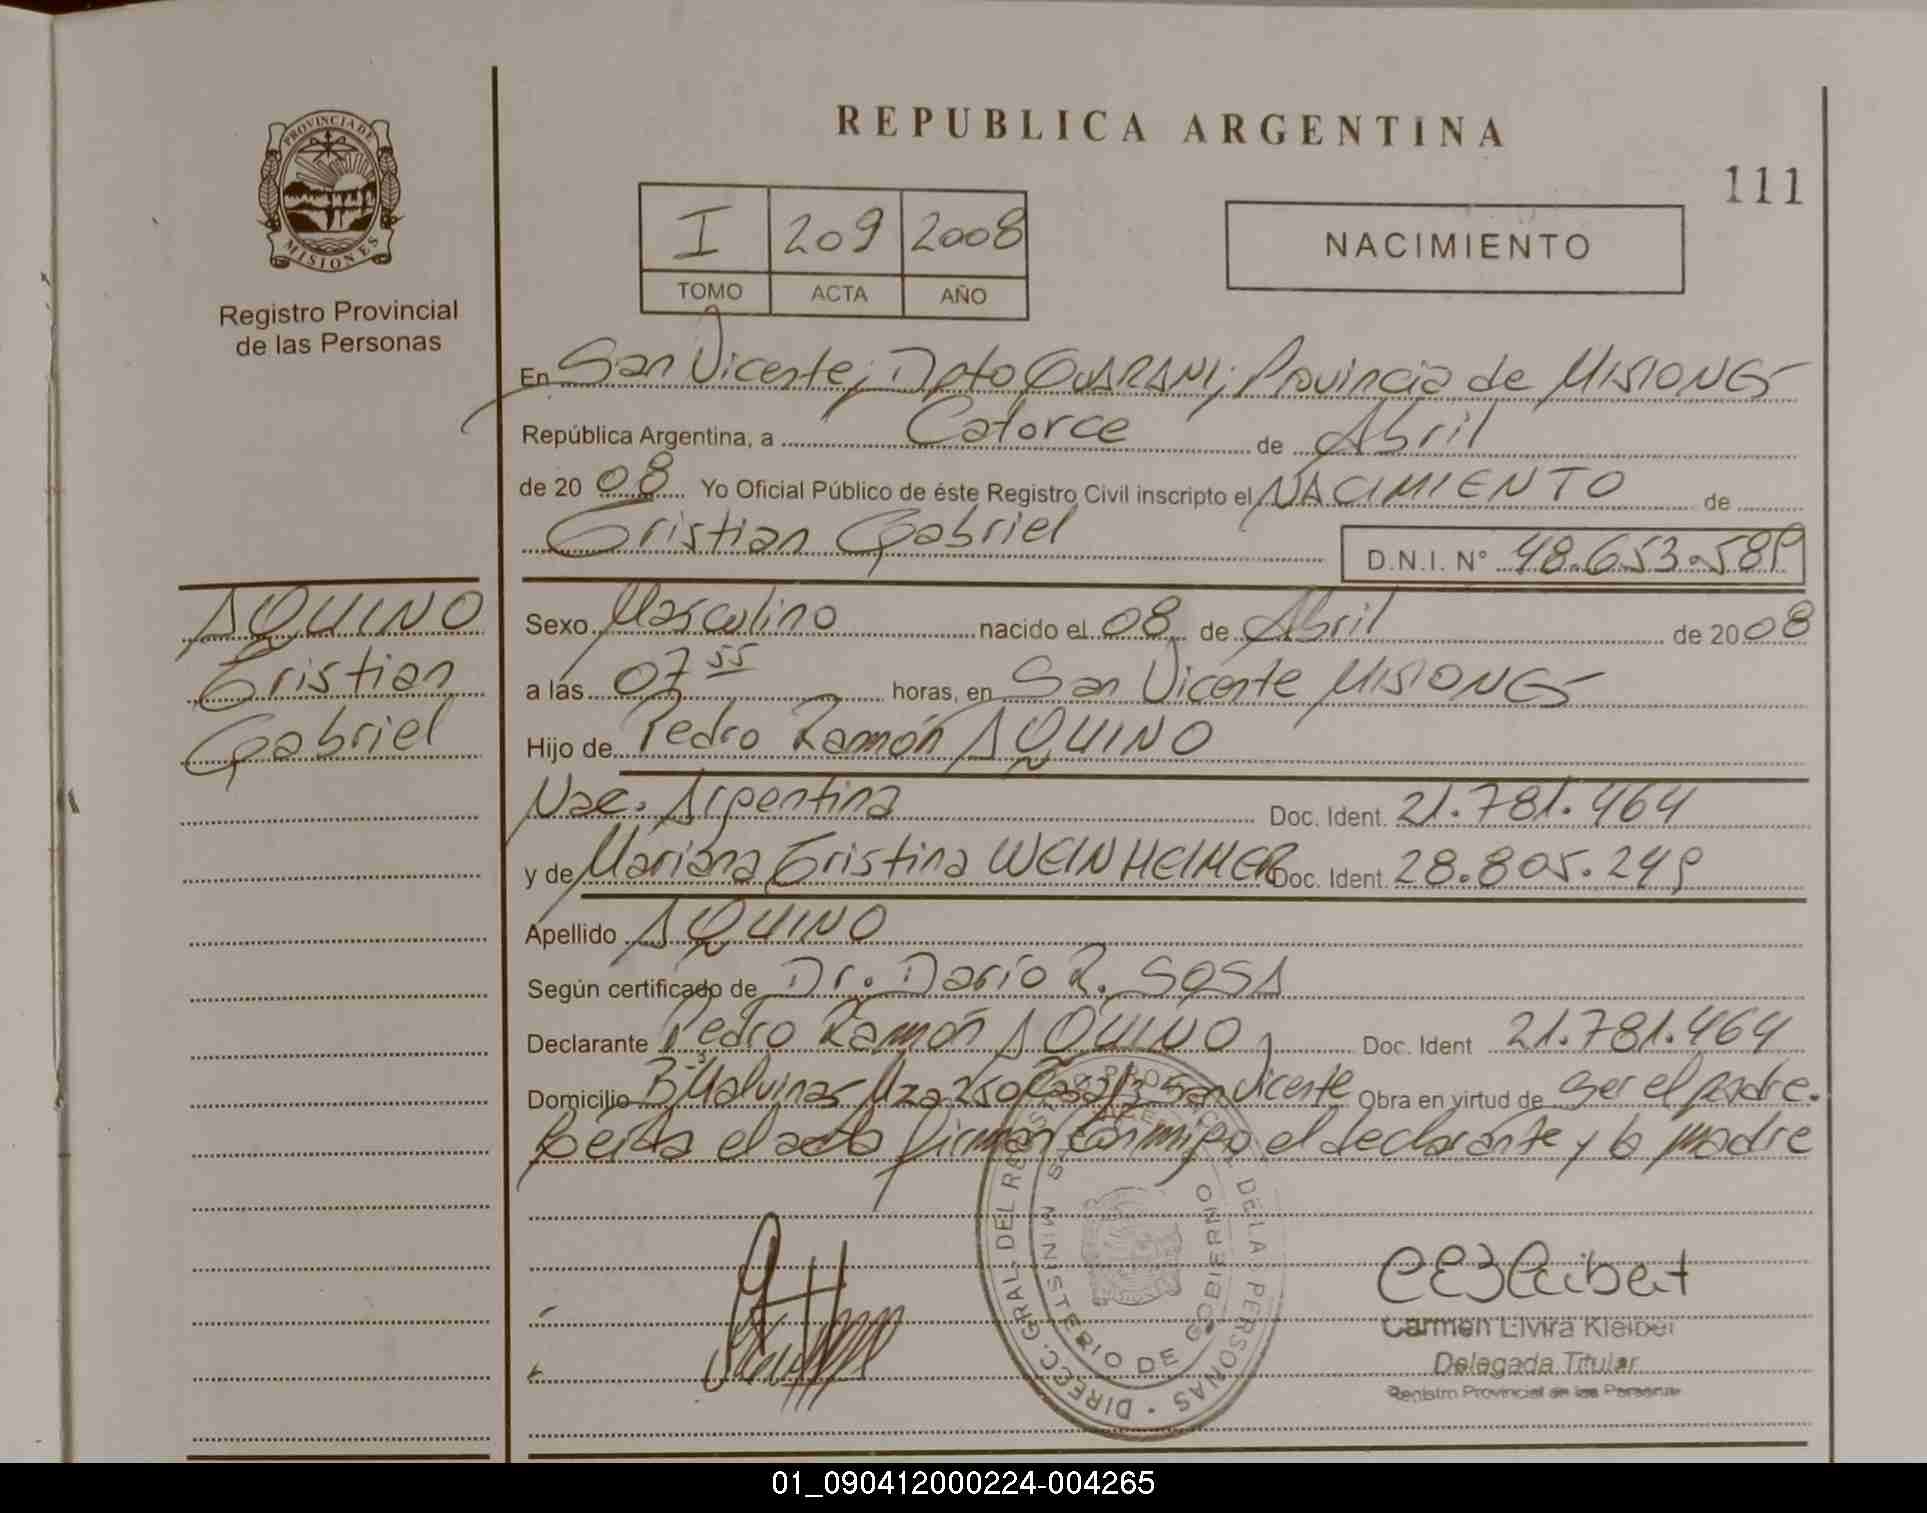 PROVINCIA DE
MISIONES
Registro Provincial
de las Personas
AQUINO
Cristian
Gabriel
REPUBLICA ARGENTINA
111
I 209 2008
TOMO ACTA AÑO
NACIMIENTO
En San Vicente; Dpto GUARANI; Provincia de MISIONES
República Argentina, a Catorce de Abril
de 20 08 Yo Oficial Público de éste Registro Civil inscripto el NACIMIENTO de
Cristian Gabriel D.N.I. N° 48.653.589
Sexo Masculino nacido el 08 de Abril de 20 08
a las 07 55 horas, en San Vicente MISIONES
Hijo de Pedro Ramón AQUINO
Nac. Argentina Doc. Ident. 21.781.464
y de Mariana Cristina WEINHEIMER Doc. Ident. 28.805.249
Apellido AQUINO
Según certificado de Dr. Darío R. SOSA
Declarante Pedro Ramón AQUINO Doc. Ident 21.781.464
Domicilio B° Malvinas Mza 250 Casa San Vicente Obra en virtud de ser el padre.
Leída el acta firman conmigo el declarante y la madre
DIREC. GRAL. DEL REG. PROV. DE LA PERSONAS
MINISTERIO DE GOBIERNO
Carmen Elvira Kleiber
Delegada Titular
Registro Provincial de las Personas
01_090412000224-004265